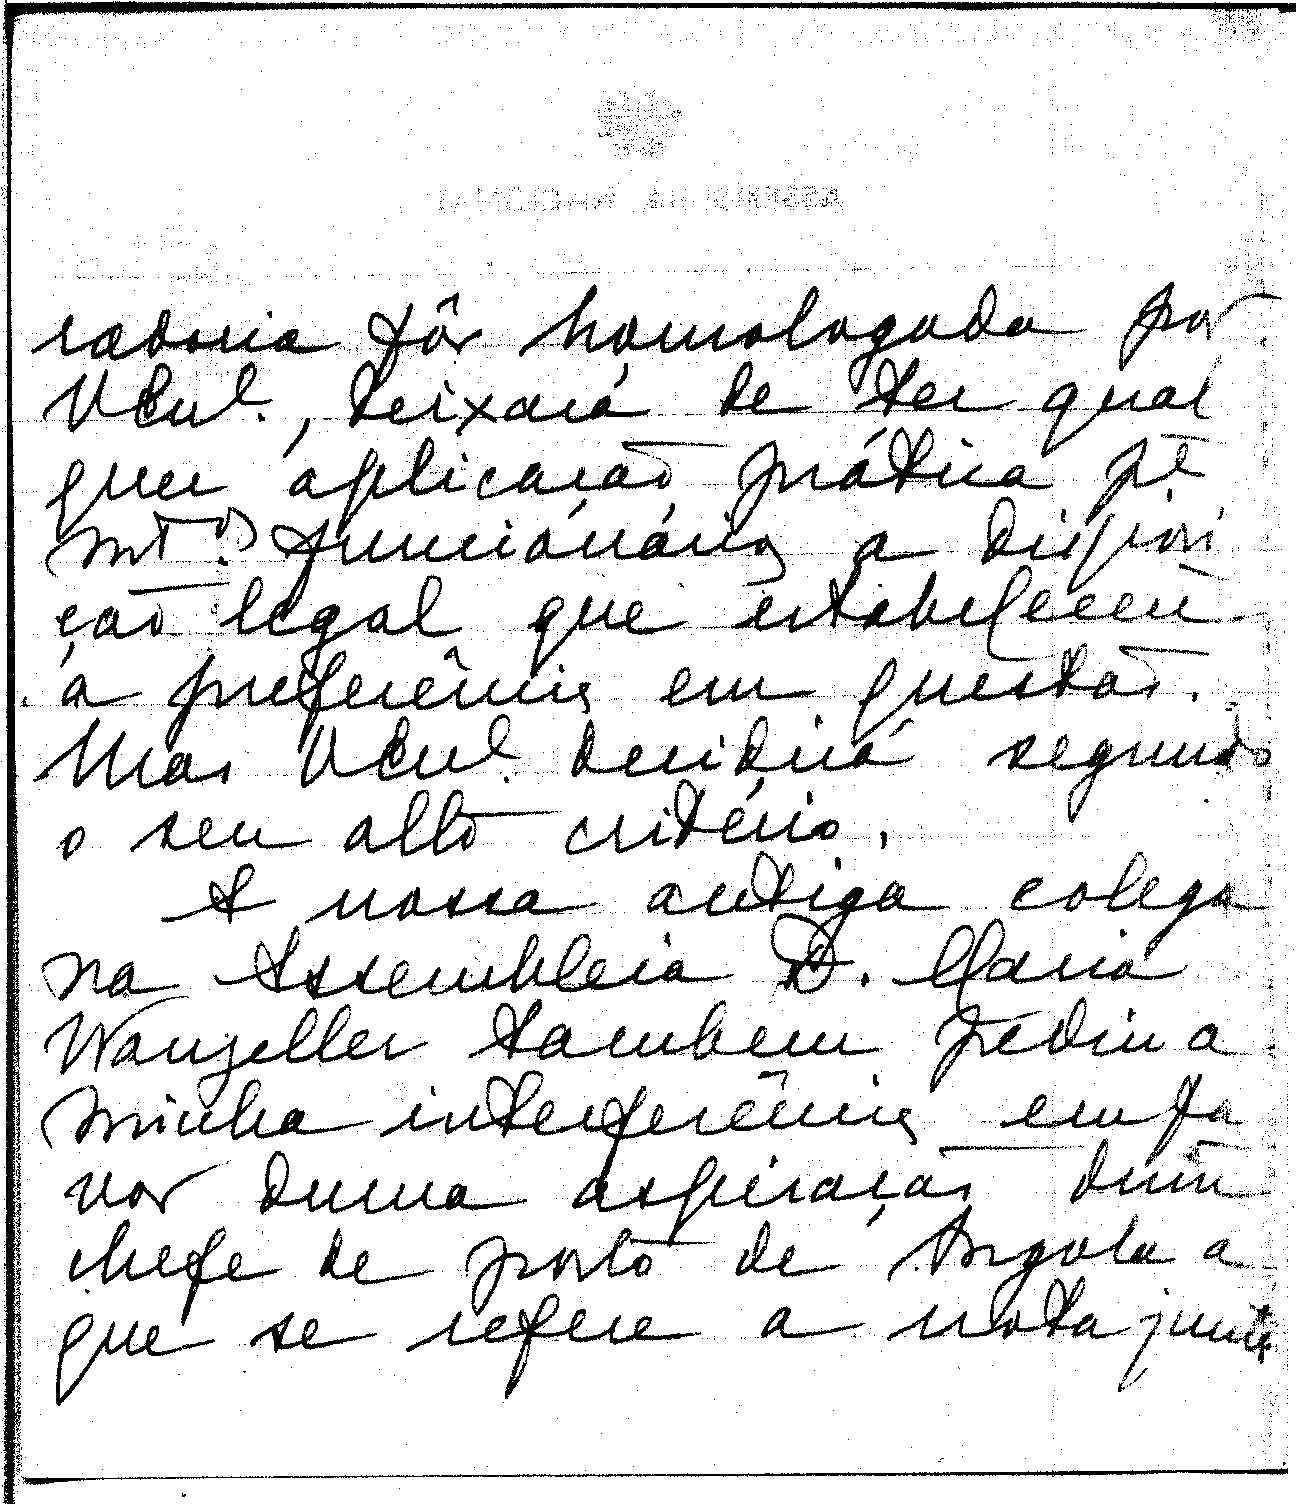 radoria fôr homologada por
V Ex.ª, deixará de ter qual
quer aplicação prática pª
mt.os funcionários a disposi
ção legal que estabeleceu
a preferência em questão.
Mas V Ex.ª decidirá segundo
o seu alto critério.
A nossa antiga colega
na Assembleia D. Maria
Wanzeller tambem pediu a
minha interferência em fa
vor duma aspiração dum
chefe de posto de Angola a
que se refere a nota junta